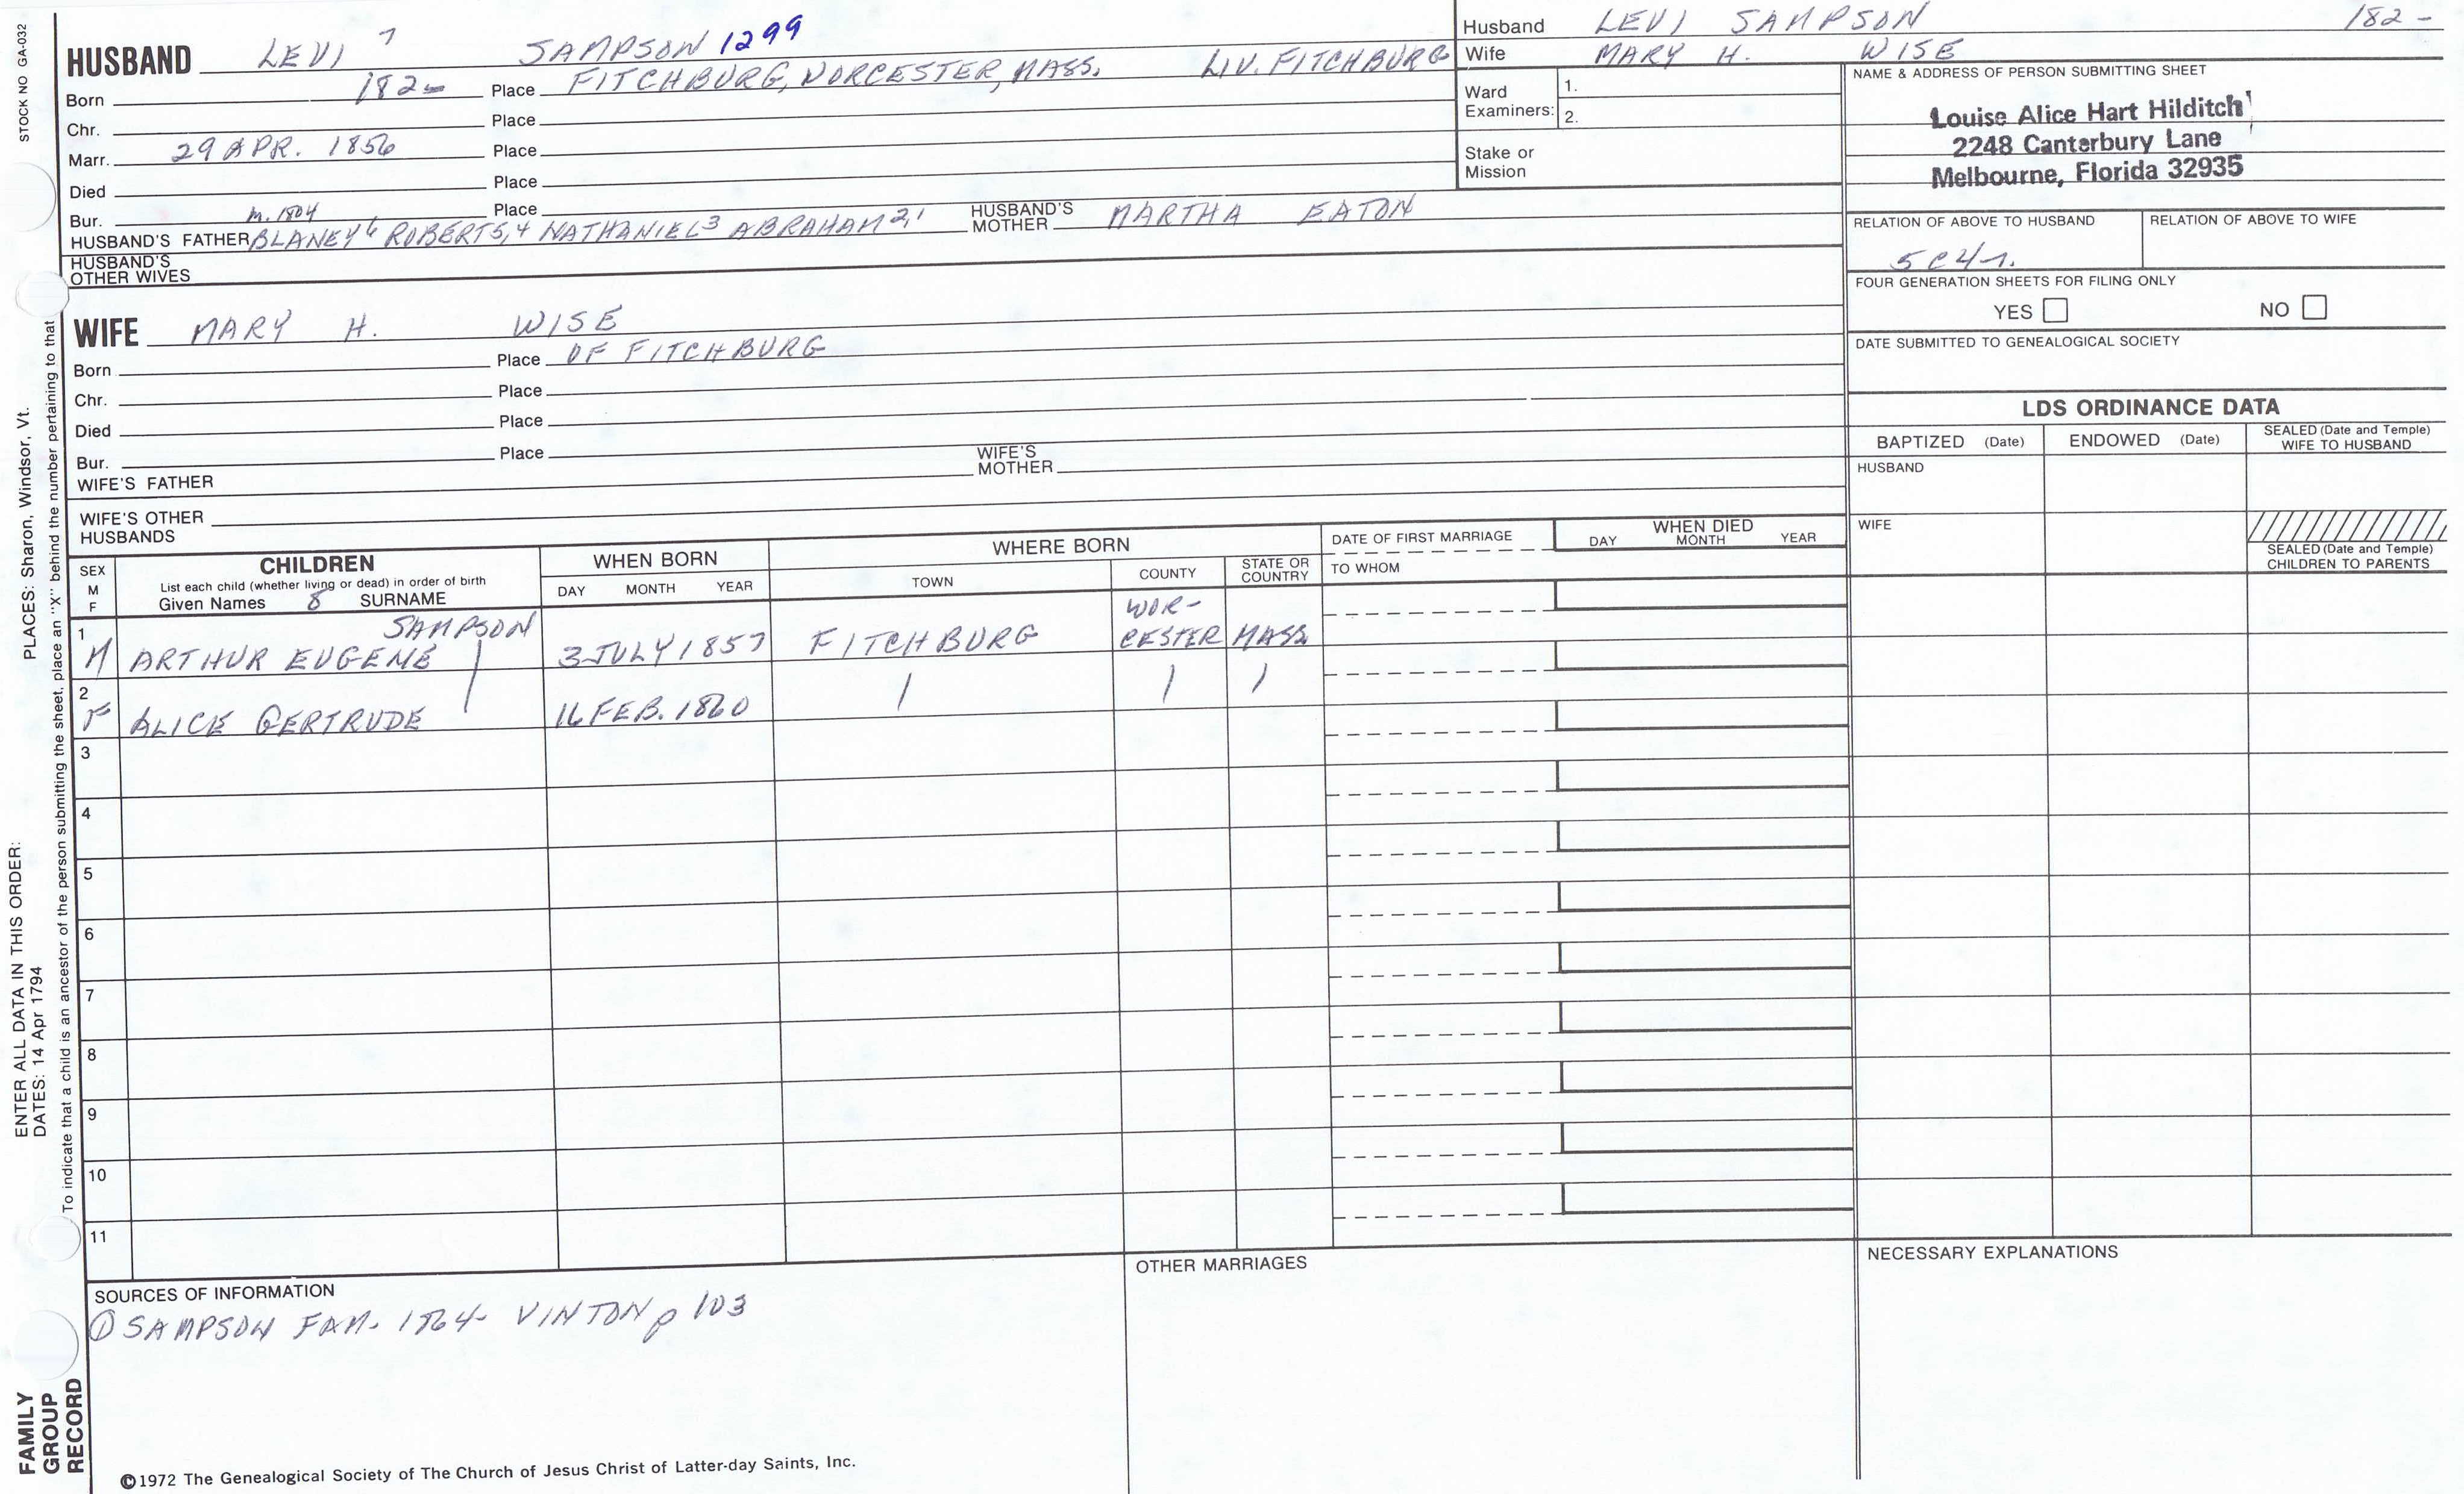 STOCK NO GA-032
HUSBAND LEVI 7 SAMPSON 1299
Born 182- Place FITCHBURG, WORCESTER, MASS. LIV. FITCHBURG
Chr. Place
Marr. 29 APR. 1856 Place
Died Place
Bur. m. 1804 Place
HUSBAND'S FATHER BLANEY6 ROBERT5,4 NATHANIEL3 ABRAHAM2,1 HUSBAND'S MOTHER MARTHA EATON
HUSBAND'S
OTHER WIVES
Husband LEVI SAMPSON 182-
Wife MARY H. WISE
Ward
Examiners:
1.
2.
Stake or
Mission
NAME & ADDRESS OF PERSON SUBMITTING SHEET
Louise Alice Hart Hilditch
2248 Canterbury Lane
Melbourne, Florida 32935
RELATION OF ABOVE TO HUSBAND RELATION OF ABOVE TO WIFE
5C4r.
FOUR GENERATION SHEETS FOR FILING ONLY
YES NO
DATE SUBMITTED TO GENEALOGICAL SOCIETY
WIFE MARY H. WISE
Born Place OF FITCHBURG
Chr. Place
Died Place
Bur. Place
WIFE'S FATHER WIFE'S MOTHER
WIFE'S OTHER
HUSBANDS
LDS ORDINANCE DATA
BAPTIZED (Date) ENDOWED (Date) SEALED (Date and Temple) WIFE TO HUSBAND
HUSBAND
WIFE
SEALED (Date and Temple)
CHILDREN TO PARENTS
SEX
M
F
CHILDREN
List each child (whether living or dead) in order of birth
Given Names 8 SURNAME
WHEN BORN
DAY MONTH YEAR
WHERE BORN
TOWN COUNTY STATE OR COUNTRY
DATE OF FIRST MARRIAGE
TO WHOM
WHEN DIED
DAY MONTH YEAR
1 SAMPSON WOR-
M ARTHUR EUGENE 3 JULY 1857 FITCHBURG CESTER MASS.
2
F ALICE GERTRUDE 16 FEB. 1860
3
4
5
6
7
8
9
10
11
SOURCES OF INFORMATION
① SAMPSON FAM. 1864 VINTON p 103
OTHER MARRIAGES
NECESSARY EXPLANATIONS
©1972 The Genealogical Society of The Church of Jesus Christ of Latter-day Saints, Inc.
FAMILY
GROUP
RECORD
ENTER ALL DATA IN THIS ORDER:
DATES: 14 Apr 1794
PLACES: Sharon, Windsor, Vt.
To indicate that a child is an ancestor of the person submitting the sheet, place an "X" behind the number pertaining to that